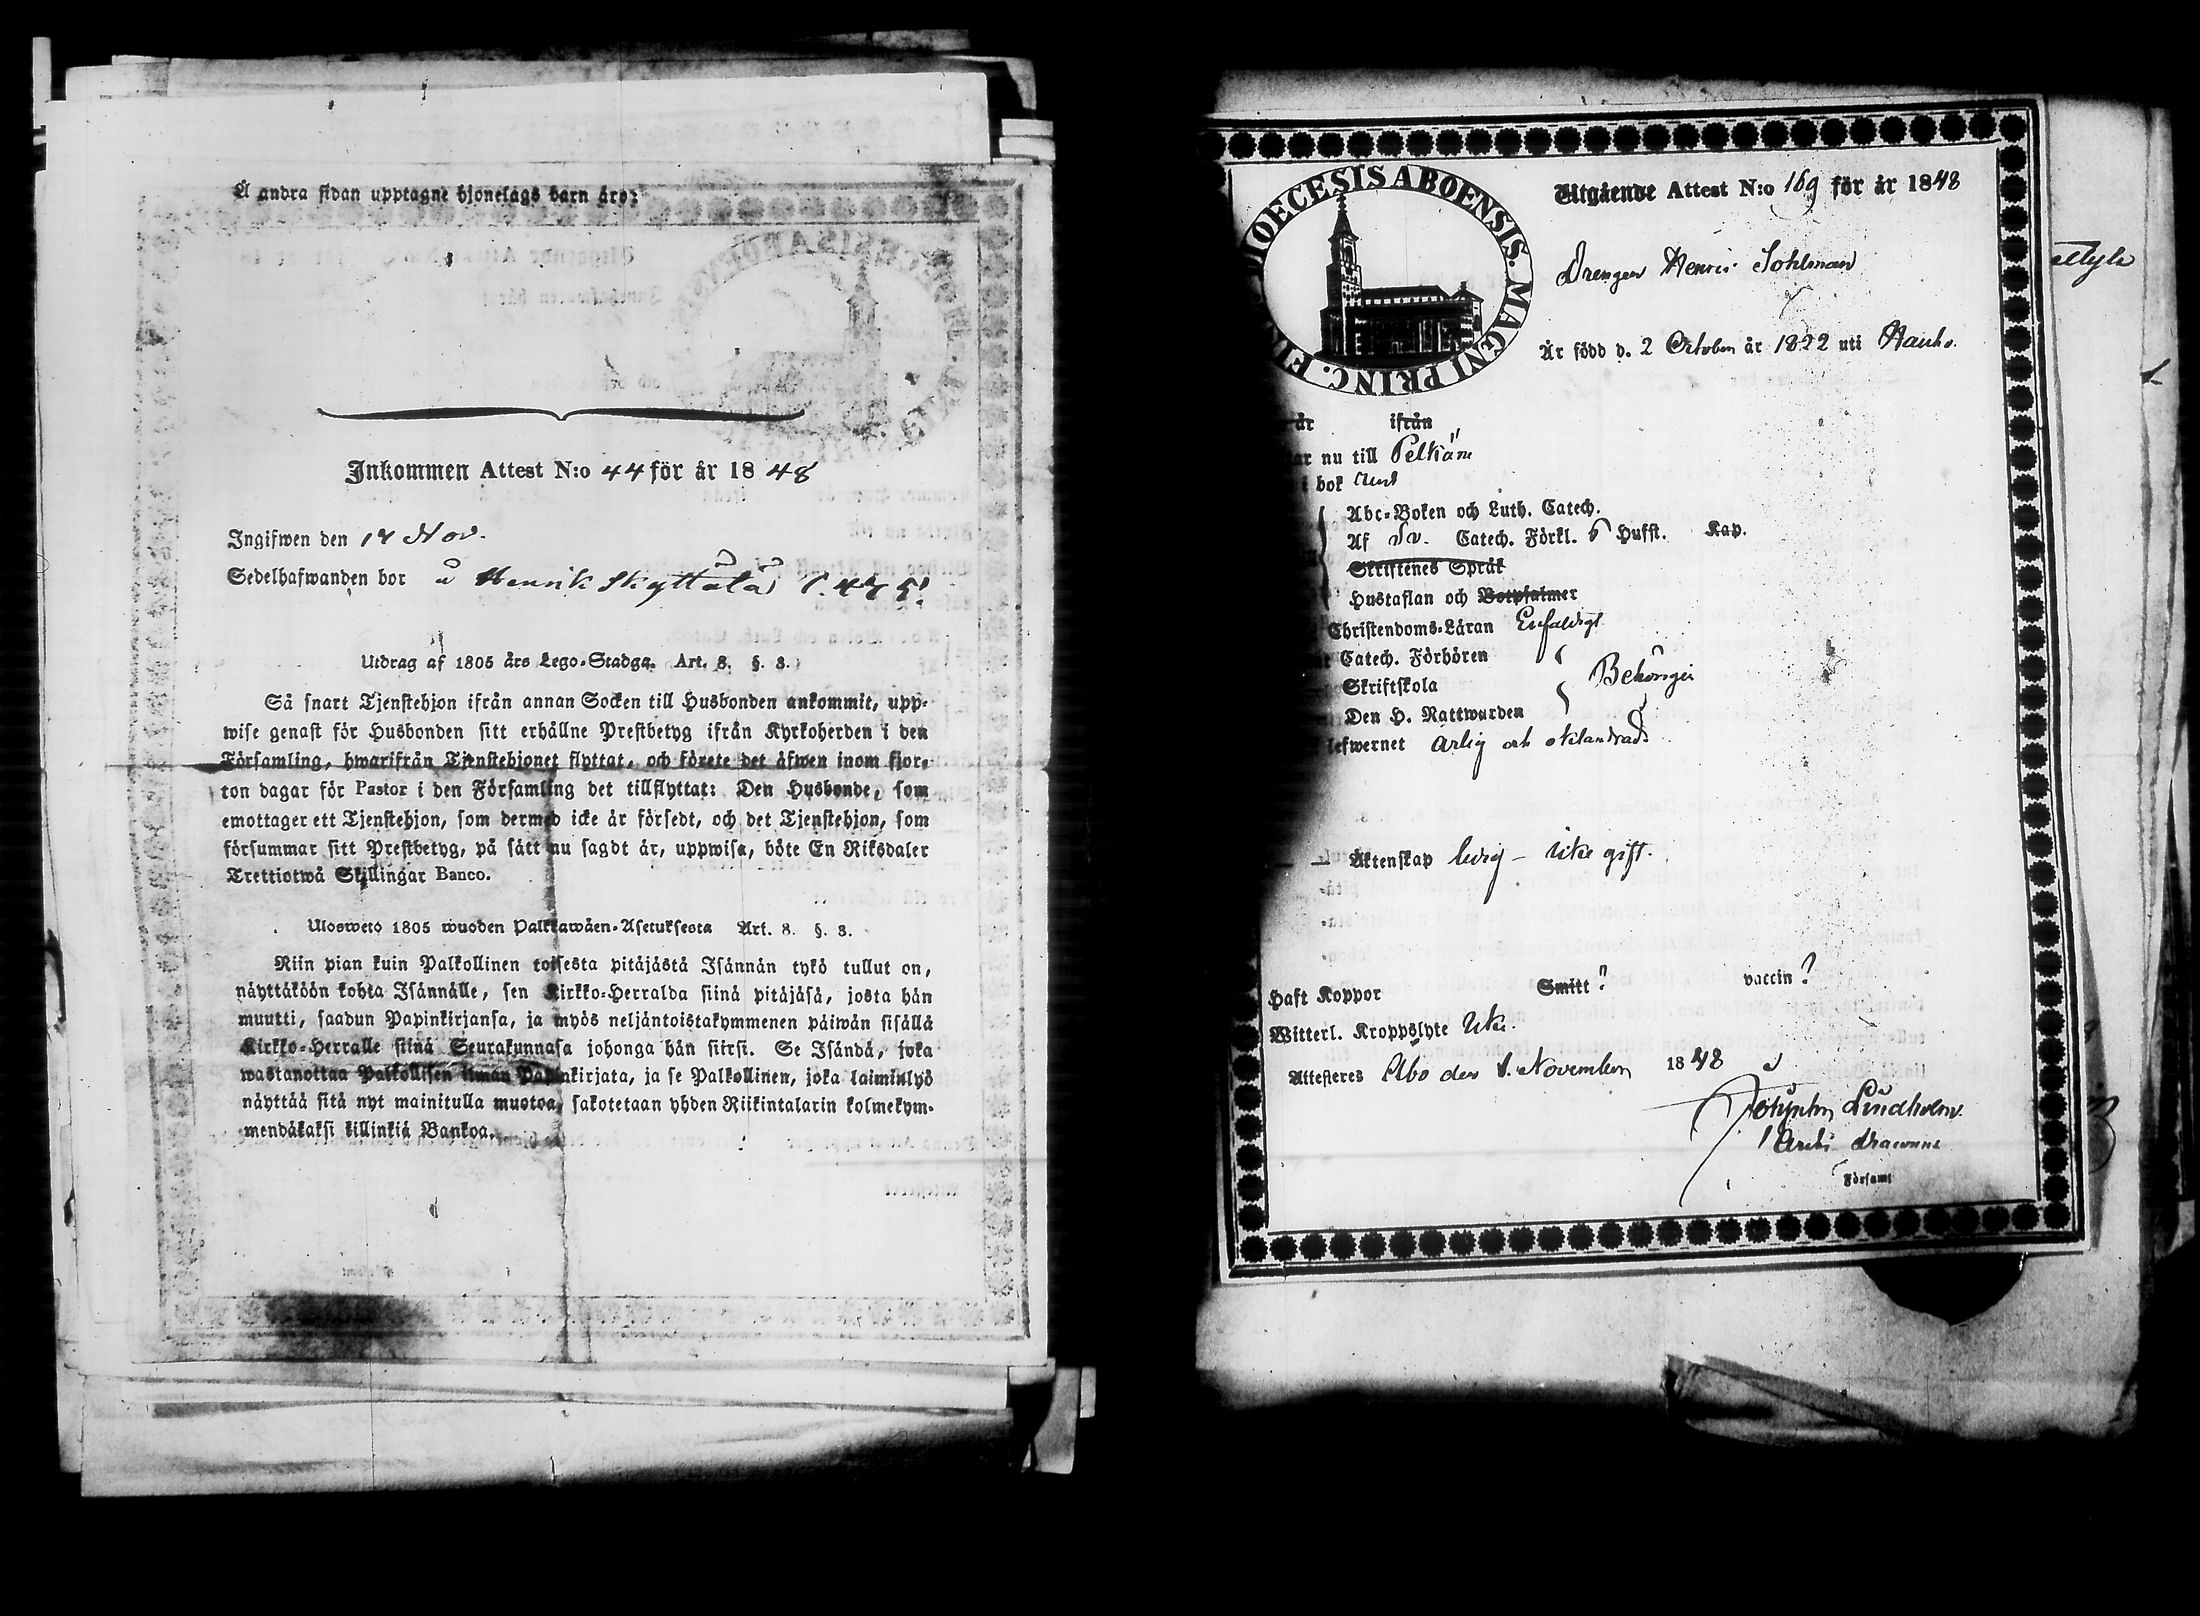 Å andra sidan upptagne hjonelags barn äro:
Inkommen Attest N:o 44 för år 1848
Ingifwen den 17 Nov.
Sedelhafwanden bor å Henrik Skyttälä
Utdrag af 1805 års Lego-Stadga. Art. 8. §. 3.
Så snart Tjenstehjon ifrån annan Socken till Husbonden ankommit, upp-
wise genast för Husbonden sitt erhållne Prestbetyg ifrån Kyrkoherden i den
Församling, hwarifrån Tjenstehjonet flyttat, och förete det äfwen inom fjor-
ton dagar för Pastor i den Församling det tillflyttat: Den Husbonde, som
emottager ett Tjenstehjon, som dermed icke är försedt, och det Tjenstehjon, som
försummar sitt Prestbetyg, på sätt nu sagdt är, uppwisa, böte En Riksdaler
Trettiotwå Skillingar Banco.
Ulosweto 1805 wuoden Palkkawäen-Asetuksesta Art. 8. §. 3.
Niin pian kuin Palkollinen toisesta pitäjästä Isännän tykö tullut on,
näyttäköön kohta Isännälle, sen Kirkko-Herralda siinä pitäjäsä, josta hän
muutti, saadun Papinkirjansa, ja myös neljäntoistakymmenen päiwän sisällä
Kirkko-Herralle siinä Seurakunnasa johonga hän siirsi. Se Isändä, joka
wastanottaa Palkollisen ilman Papinkirjata, ja se Palkollinen, joka laiminlyö
näyttää sitä nyt mainitulla muotoa, sakotetaan yhden Riikintalarin kolmekym-
mendäkaksi killinkiä Bankoa.
DIOECESIS ABOENSIS. MAGNI PRINC. FIN
Utgående Attest N:o 169 för år 1848
Drengen Henric Sohlman
Är född d. 2 October år 1822 uti Hauho.
är ifrån
ar nu till Pelkäne
i bok
Abc-Boken och Luth. Catech.
Af Sv. Catech. Förkl. 6 Hufst. Kap.
Skriftenes Språk
Hustaflan och Botpsalmer
Christendoms-Läran Enfaldigt
Catech. Förhören
Skriftskola Behörigen
Den H. Nattwarden
lefwernet ärlig och oklandrad
Äktenskap ledig - icke gift.
Haft Koppor Smitt? vaccin?
Witterl. Kroppslyte Icke.
Attesteres Åbo den 8. November 1848
Lindholm
Församl